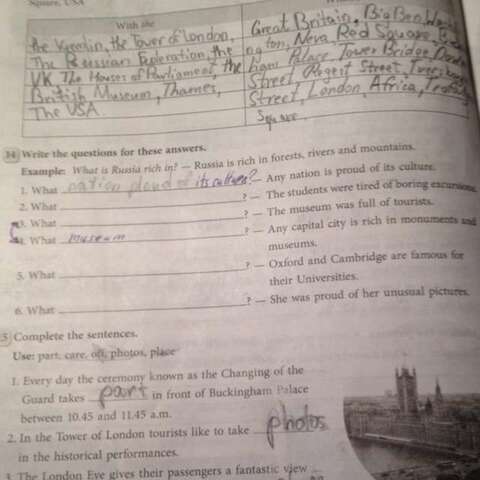 Square, USA
With the
the Kremlin, the Tower of London,
The Russian Federation, the
UK, The Houses of Parliament, the
British Museum, Thames,
The USA
Great Britain, Big Ben,
ton, Neva, Red Square,
ham Palace, Tower Bridge,
Street, Regent Street,
Street, London, Africa,
14 Write the questions for these answers.
Example: What is Russia rich in? — Russia is rich in forests, rivers and mountains.
1. What nation ploud of its culture? — Any nation is proud of its culture.
2. What ? — The students were tired of boring excursions
3. What ? — The museum was full of tourists.
4. What museum ? — Any capital city is rich in monuments and
museums.
5. What ? — Oxford and Cambridge are famous for
their Universities.
6. What ? — She was proud of her unusual pictures.
5 Complete the sentences.
Use: part, care, off, photos, place
1. Every day the ceremony known as the Changing of the
Guard takes part in front of Buckingham Palace
between 10.45 and 11.45 a.m.
2. In the Tower of London tourists like to take photos
in the historical performances.
3 The London Eye gives their passengers a fantastic view